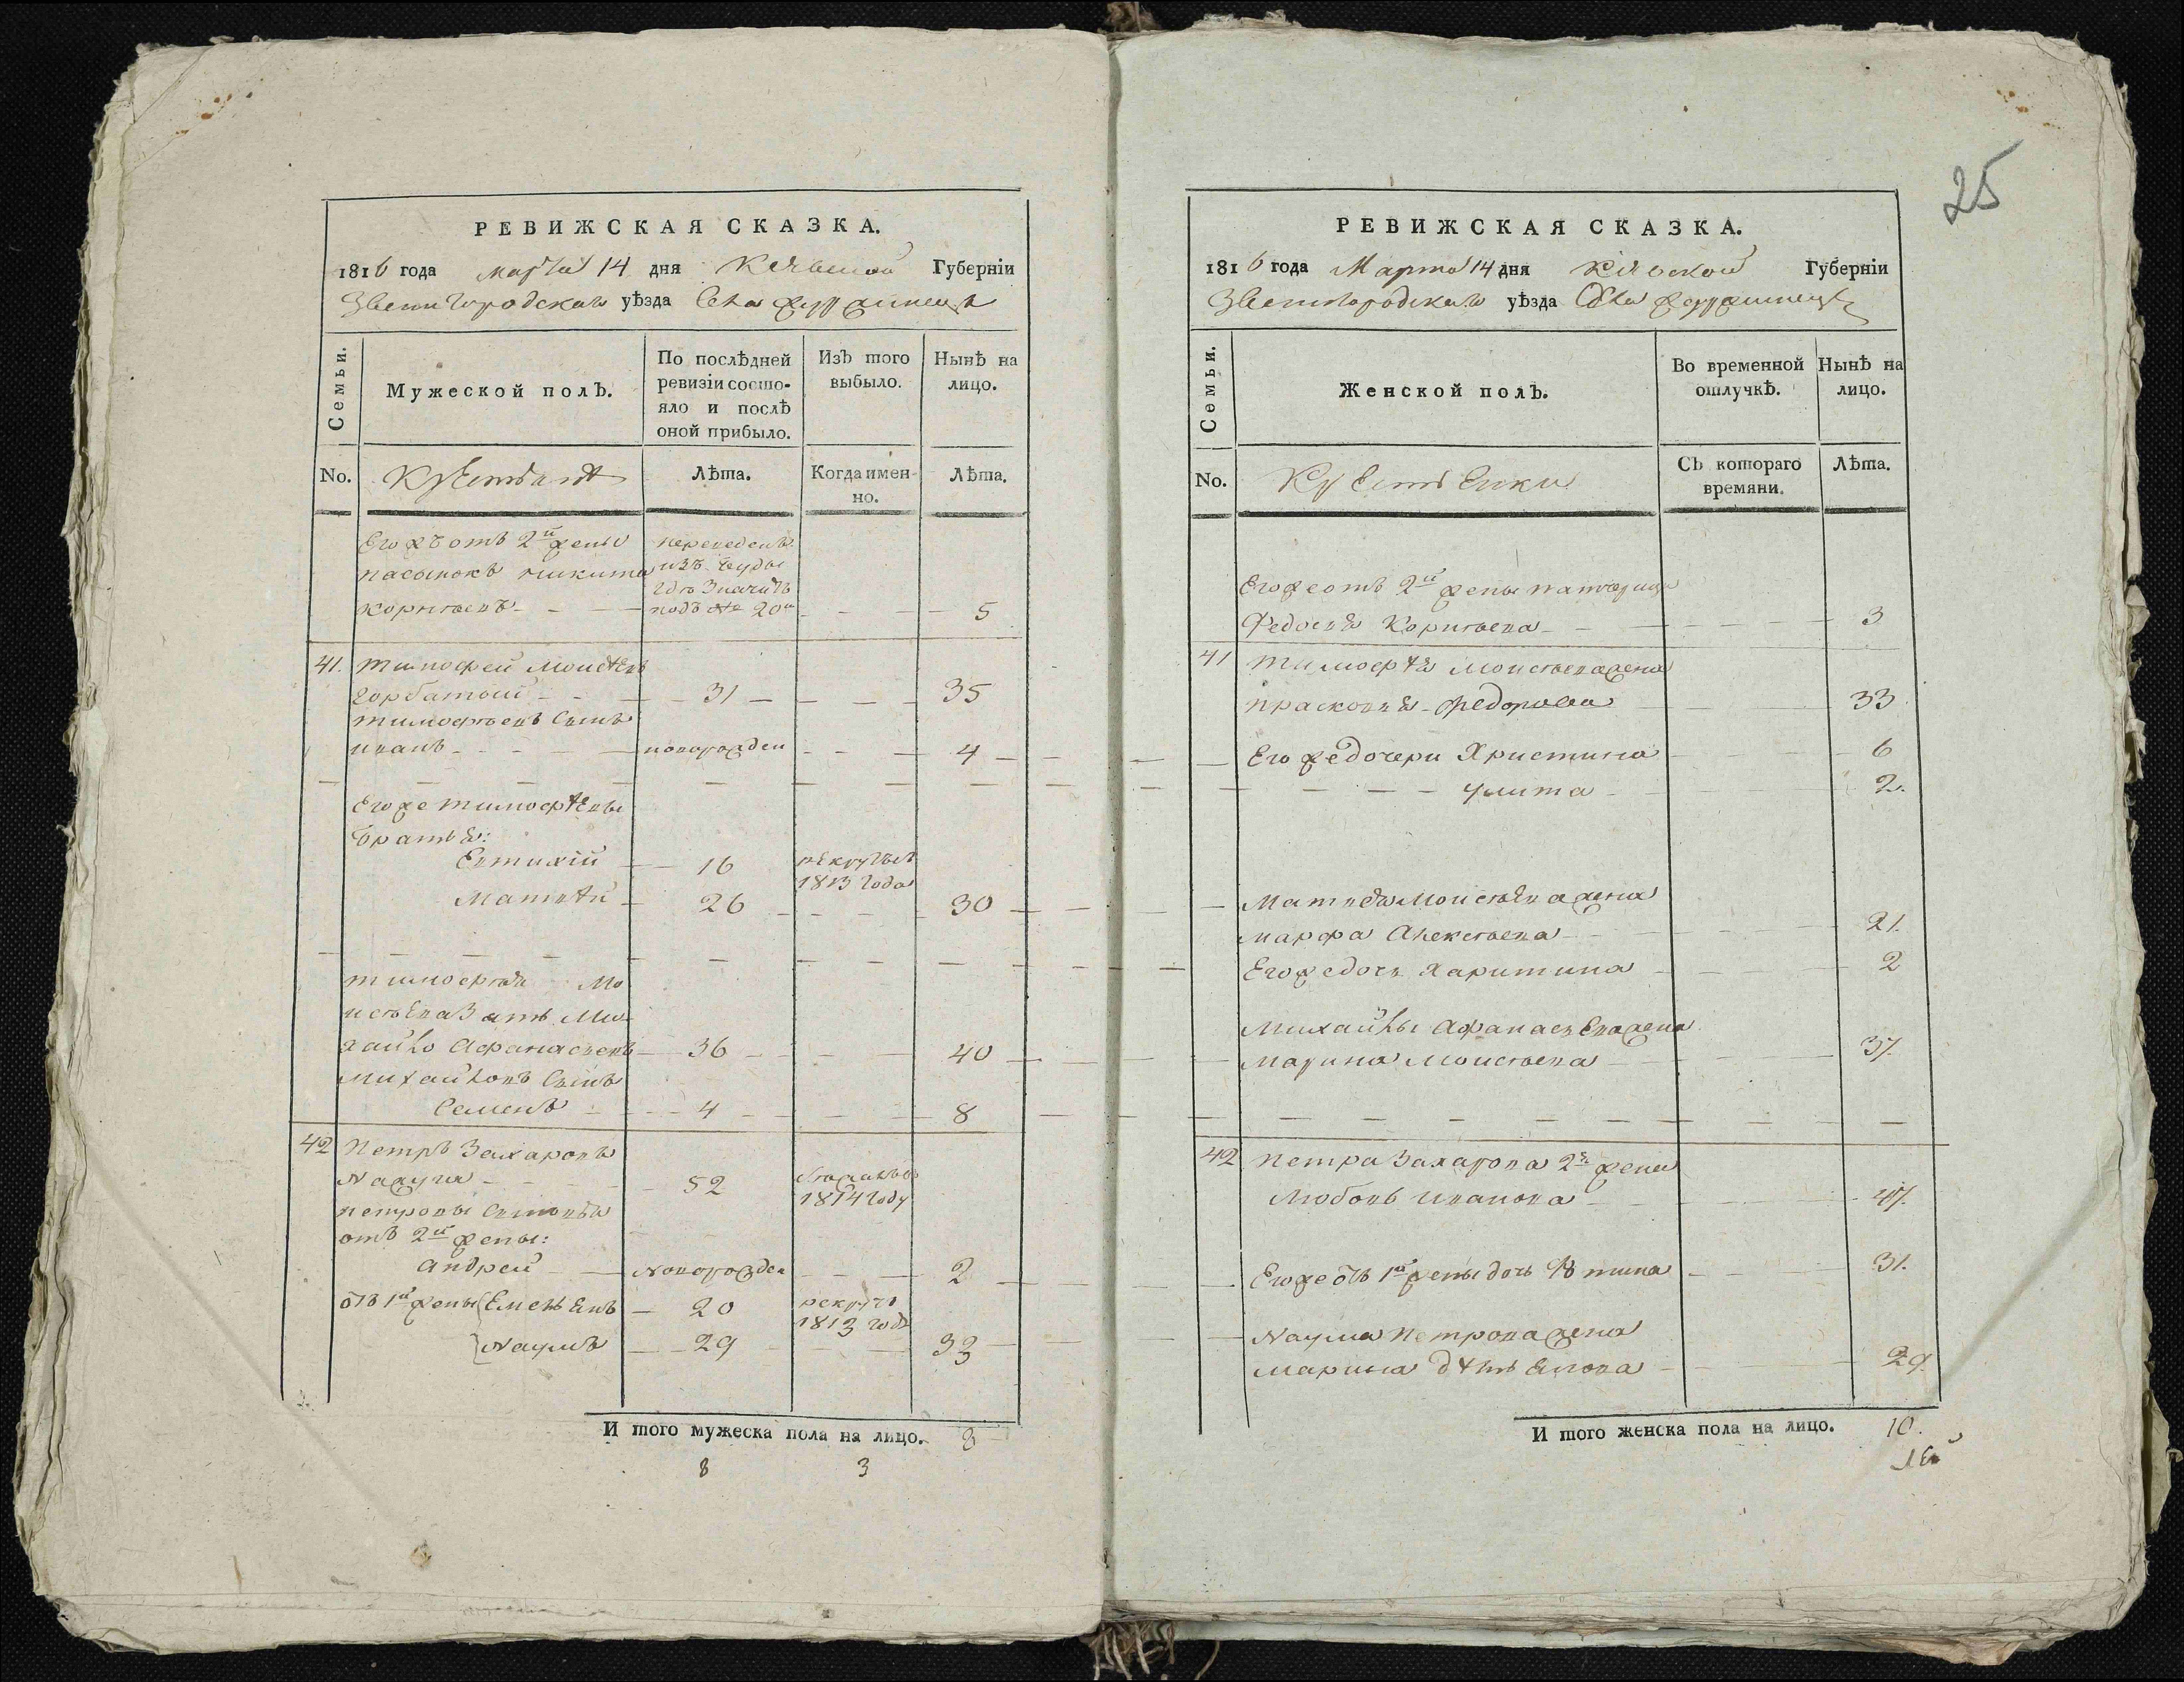 РЕВИЖСКАЯ СКАЗКА.
1816 года марта 14 дня Киевской Губерніи
Звенигородскаго уѣзда Села
Семьи.
Мужеской полъ.
По послѣдней ревизіи состо-
яло и послѣ
оной прибыло.
Изъ того
выбыло.
Нынѣ на
лицо.
No.
Крестьянѣ
Лѣта.
Когда имен-
но.
Лѣта.
Его жъ отъ 2й жены
пасынокъ Никита
Корнѣевъ
переведенъ
изъ Буды
гдѣ значитъ
подъ № 20м
5
41. Тимофей Моисѣевъ
Горбатый 31 35
Тимофѣевъ Сынъ
иванъ новорожден 4
Его же Тимофѣевы
братья:
Евтихій 16 рекрутъ
1813 года
Матвѣй 26 30
Тимофѣя Мо
исѣева Зять Ми-
хайло Афанасьевъ 36 40
Михайловъ Сынъ
Семенъ 4 8
42 Петръ Захаровъ
52
1814 году
Петровы Сыновья
отъ 2й жены:
Андрей Новорожден 2
отъ 1й жены Емельянъ 20 рекрутъ
1813 года
Наумъ 29 33
И того мужеска пола на лицо. 8
8 3
25
РЕВИЖСКАЯ СКАЗКА.
1816 года Марта 14 дня Киевской Губерніи
Звенигородскаго уѣзда Села
Семьи.
Женской полъ.
Во временной
отлучкѣ.
Нынѣ на
лицо.
No.
Крестьянки
Съ котораго
времяни.
Лѣта.
Его же отъ 2й жены патчерица
Федосья Корнѣева 3
41 Тимофѣя Моисѣева жена
Прасковья Федорова 33
Его же дочери Христина 6
Улита 2.
Матвѣя Моисѣева жена
Марфа Алексѣева 21.
Его же дочь Харитина 2
Михайлы Афанасьева жена
Марина Моисѣева 37.
42 Петра Захарова 2я жена
Любовь Иванова 47.
Его же отъ 1й жены дочь 31.
Наума Петрова жена
Марина 29.
И того женска пола на лицо. 10.